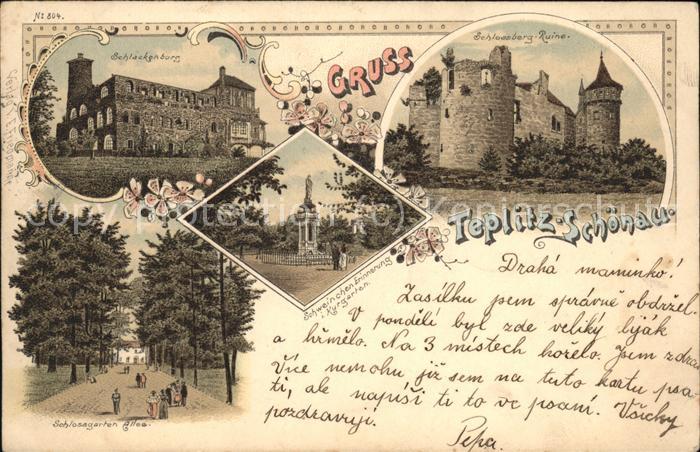 No 804.
Schlackenburg
GRUSS
Schlossberg-Ruine.
Teplitz-Schönau.
Schweinchen Erinnerung
i. Kurgarten.
Schlossgarten Allee.
Drahá maminko!
Zasílku jsem správně obdržel.
V pondělí byl zde veliký liják
a hřmělo. Na 3 místech hořelo. Jsem zdráv
Více nemohu již sem na tuto kartu psa-
ti, ale napíši ti to ve psaní. Všicky
pozdravuji.
Pepa.
copyright protection watermark